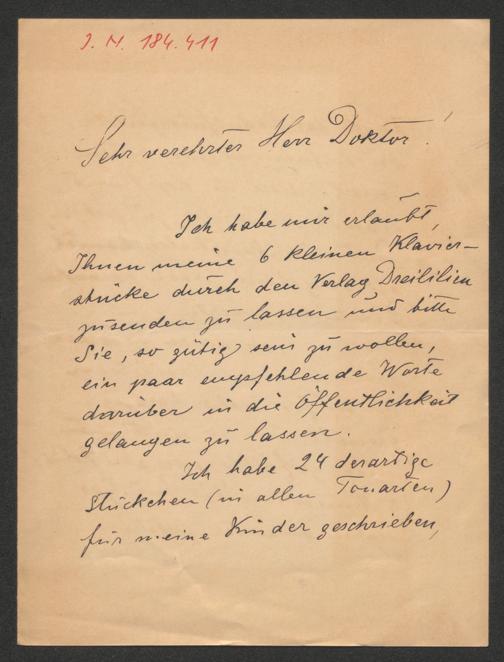 J. N. 184.411
Sehr verehrter Herr Doktor!
Ich habe mir erlaubt,
Ihnen meine 6 kleinen Klavier-
stücke durch den Verlag Dreililien
zusenden zu lassen und bitte
Sie, so gütig sein zu wollen,
ein paar empfehlende Worte
darüber in die Öffentlichkeit
gelangen zu lassen.
Ich habe 24 derartige
Stückchen (in allen Tonarten)
für meine Kinder geschrieben,